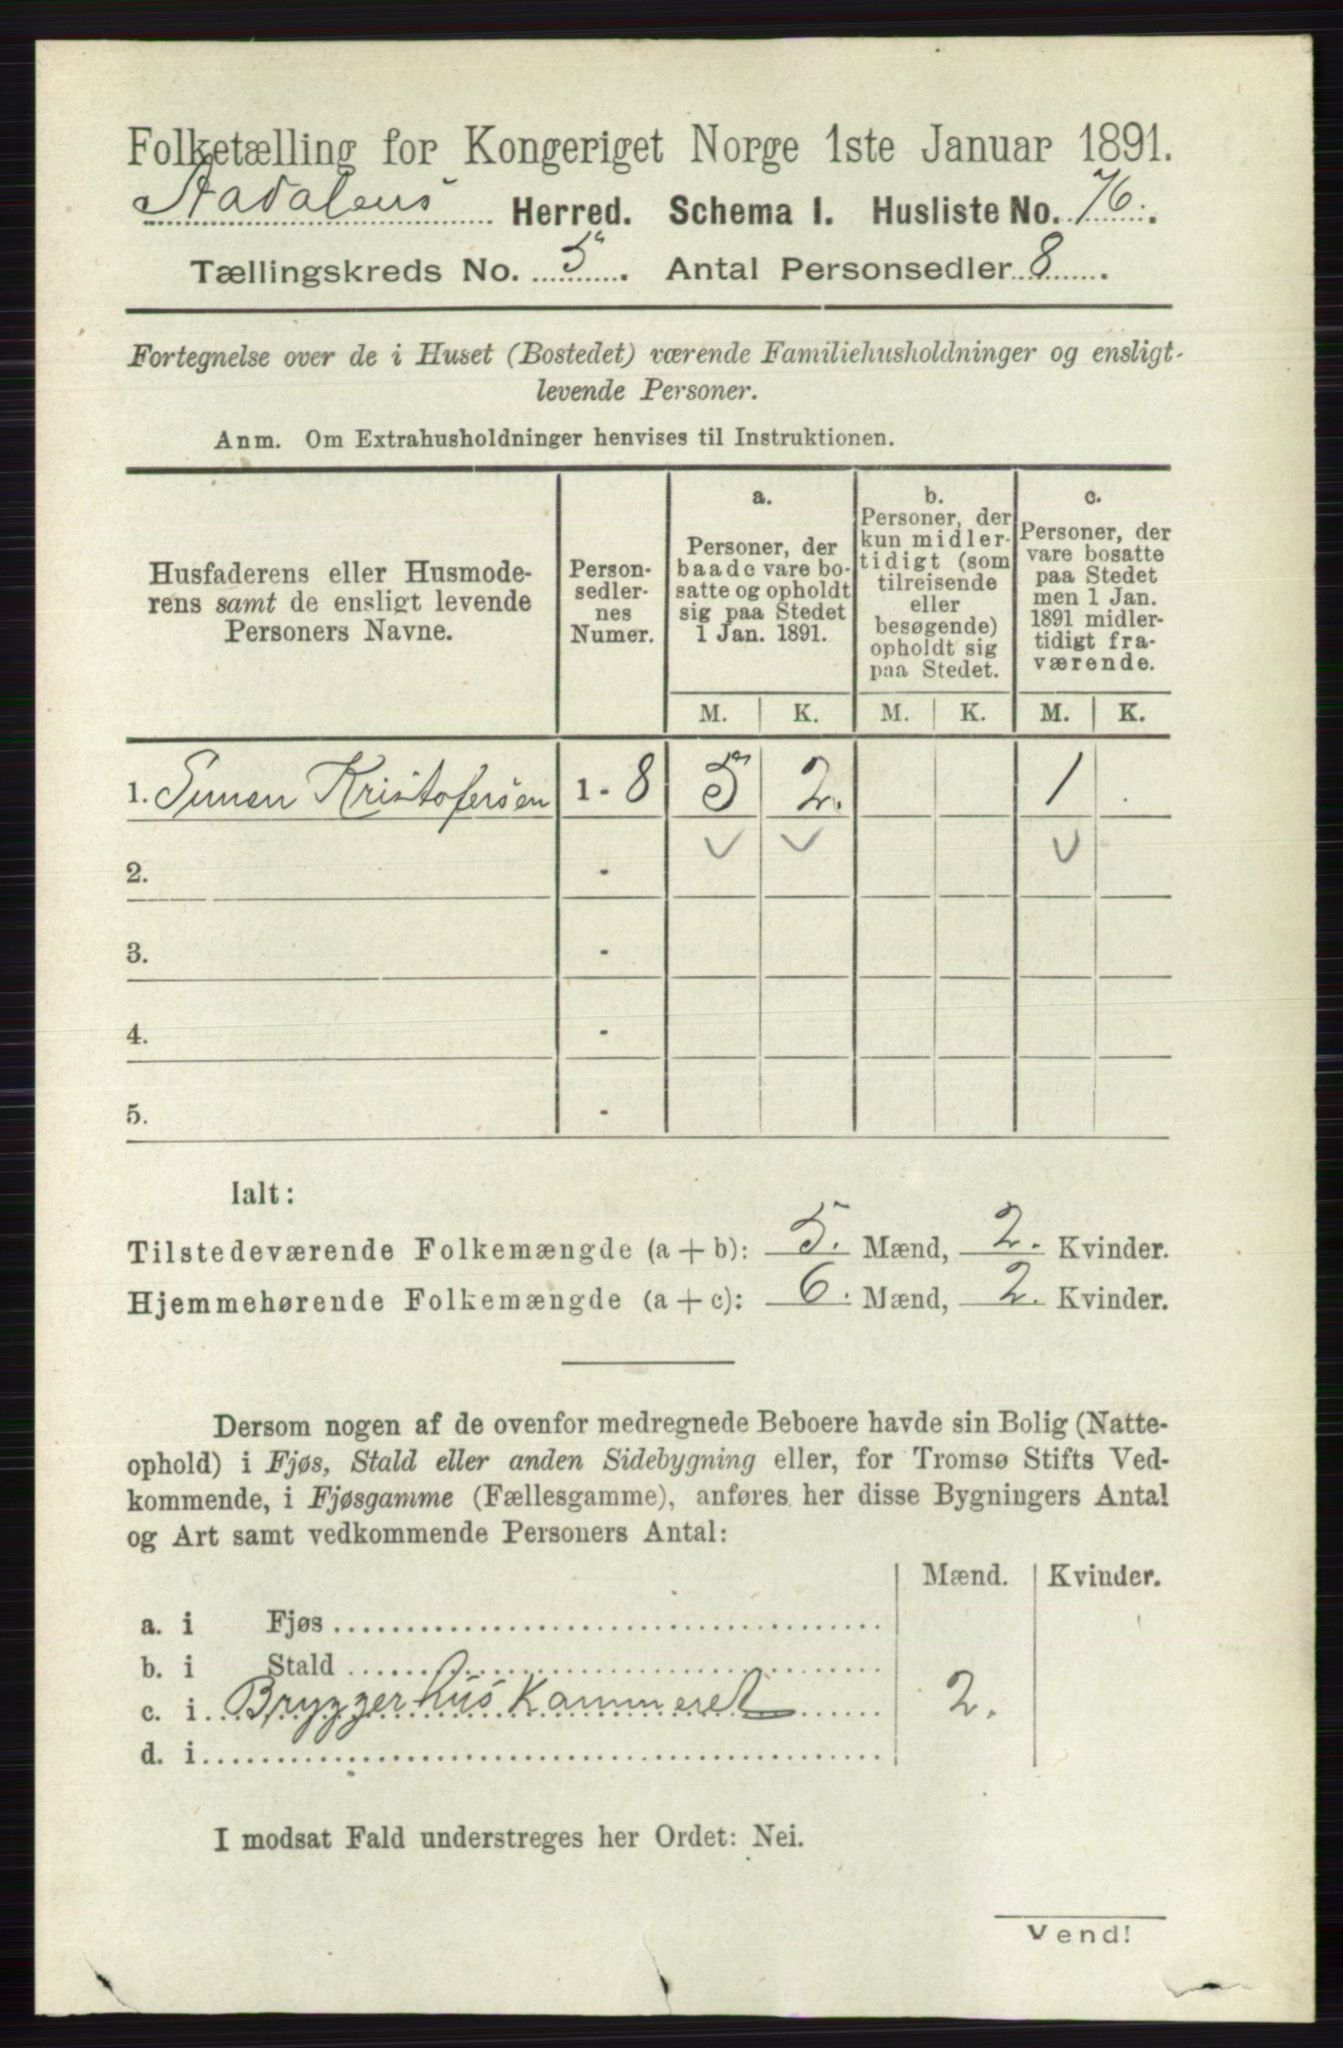 Folketælling for Kongeriget Norge 1ste Januar 1891.
Aadalens Herred. Schema I. Husliste No. 76.
Tællingskreds No. 5. Antal Personsedler 8.
Fortegnelse over de i Huset (Bostedet) værende Familiehusholdninger og ensligt-
levende Personer.
Anm. Om Extrahusholdninger henvises til Instruktionen.
Husfaderens eller Husmode-
rens samt de ensligt levende
Personers Navne.
Person-
sedler-
nes
Numer.
a.
Personer, der
baade vare bo-
satte og opholdt
sig paa Stedet
1 Jan. 1891.
b.
Personer, der
kun midler-
tidigt (som
tilreisende
eller
besøgende)
opholdt sig
paa Stedet.
c.
Personer, der
vare bosatte
paa Stedet
men 1 Jan.
1891 midler-
tidigt fra-
værende.
M. K. M. K. M. K.
1. Simen Kristofersen 1 - 8 5 2. 1
2. -
3. -
4. -
5. -
Ialt:
Tilstedeværende Folkemængde (a + b): 5. Mænd, 2. Kvinder.
Hjemmehørende Folkemængde (a + c): 6. Mænd, 2. Kvinder.
Dersom nogen af de ovenfor medregnede Beboere havde sin Bolig (Natte-
ophold) i Fjøs, Stald eller anden Sidebygning eller, for Tromsø Stifts Ved-
kommende, i Fjøsgamme (Fællesgamme), anføres her disse Bygningers Antal
og Art samt vedkommende Personers Antal:
Mænd. Kvinder.
a. i Fjøs
b. i Stald
c. i Bryggerhus Kammeret 2.
d. i
I modsat Fald understreges her Ordet: Nei.
Vend!